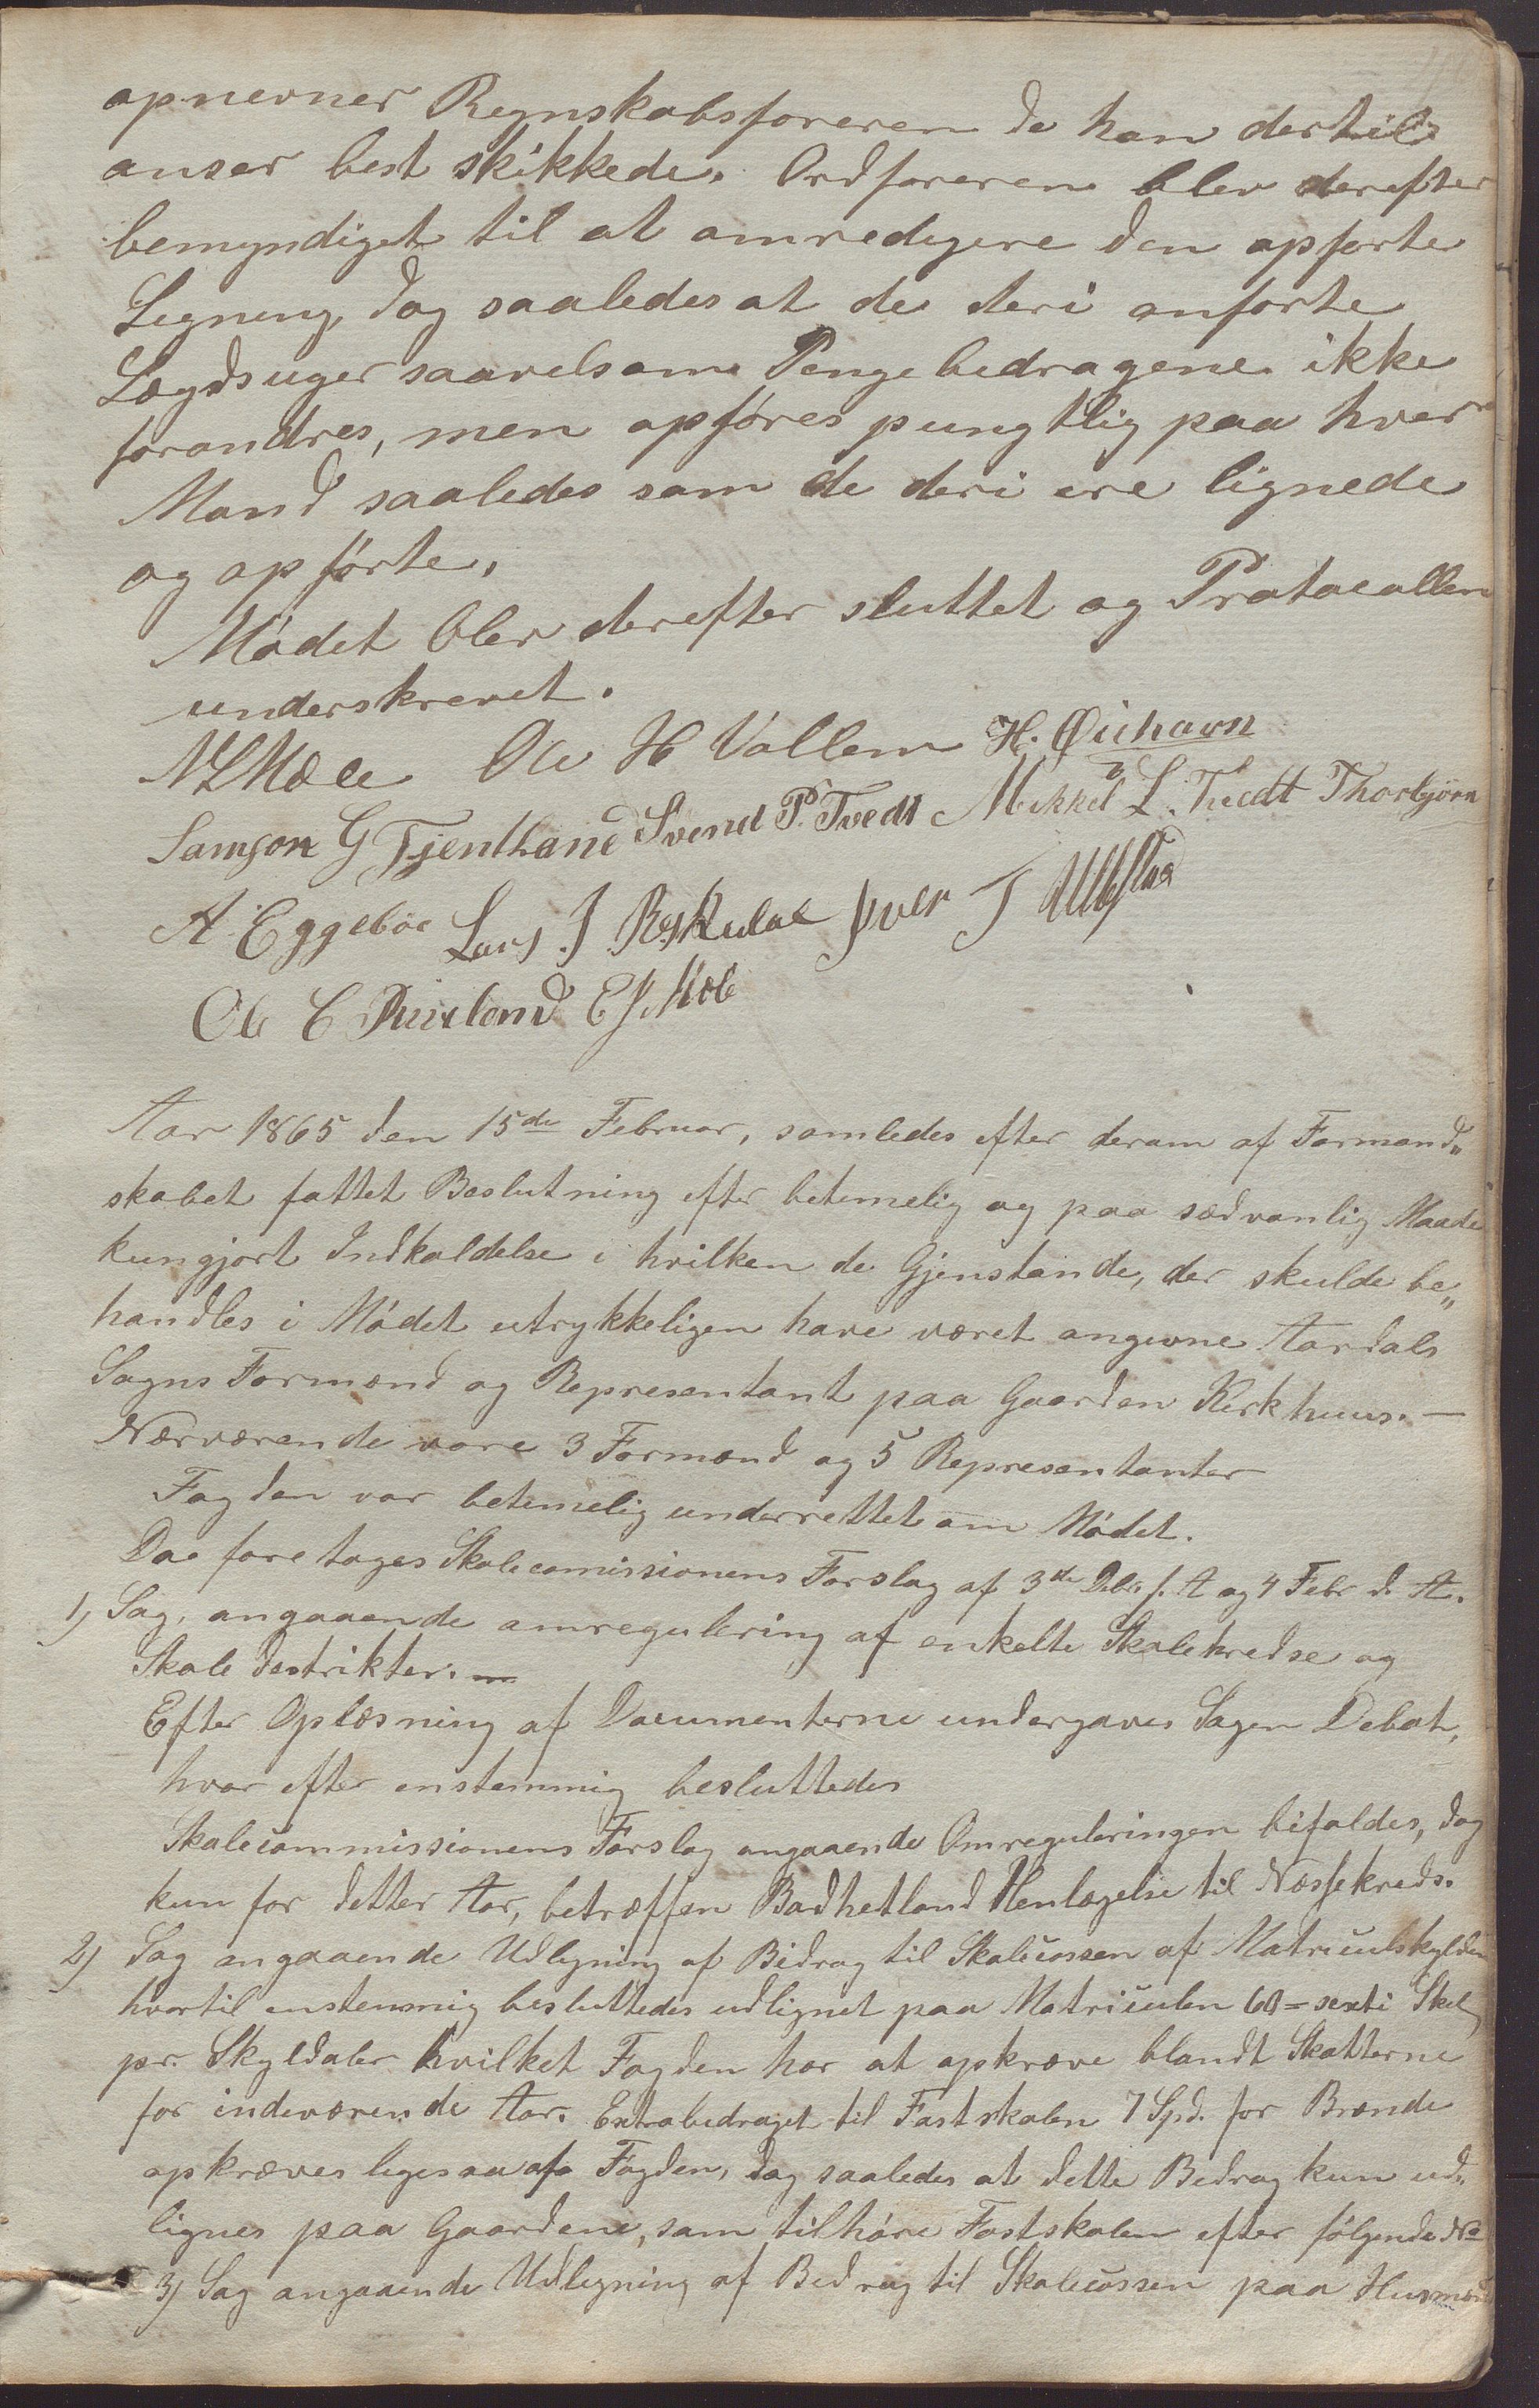 opnevner Regnskabsføreren de han dertil
anser best skikkede. Ordføreren blev derefter
bemyndiget til at omredigere den opførte
Ligning, dog saaledes at de deri anførte
Lægdsuger saavelsom Pengebedragene ikke
forandres, men opføres pungtlig paa hver
Mand saaledes som de deri ere lignede
og opførte.
Mødet blev derefter sluttet og Protocollen
underskrevet.
Ole H Vallem H. Øiehavn
Samson G Tjentland Svend P. Tvedt Mikkel L. Tvedt Thorbjørn
A. Eggebøe Lars J. Riskedal Iver T
Ole C E J Mæle
Aar 1865 den 15de Februar, samledes efter derom af Formand„
skabet fattet Beslutning efter betimelig og paa sædvanlig Maade
kungjort Indkaldelse i hvilken de Gjenstande, der skulde be„
handles i Mødet utrykkeligen have været angivne Aardals
Sogns Formænd og Representant paa Gaarden Kirkhuus. —
Nærværende vare 3 Formænd og 5 Representanter
Fogden var betimelig underrettet om Mødet.
Da foretoges Skolecomissionens Forslag af 3de Debr. f. A og 4 Febr d. A.
1) Sag, angaaende omregulering af enkelte Skolekredse og
Skole destrikter. —
Efter Oplæsning af Documenterne undergaves Sagen Debat,
hvor efter enstemmig besluttedes
Skolecommissionens Forslag angaaende Omreguleringen bifaldes, dog
kun for detter Aar, betræffen Badhetland Henlægelse til Næssekreds.
2) Sag angaaende Udligning af Bidrag til Skolecassen af Matriculskylden
hvortil enstemmig besluttedes udlignet paa Matriculen 60 = sexti Skel
pr. Skyldaler hvilket Fogden har at opkræve blandt Skatterne
for indeværende Aar. Extrabedraget til Fastskolen 7 Spd. for Brænde
opkræves ligesaa af Fogden, dog saaledes at dette Bedrag kun ud„
lignes paa Gaardene, som tilhøre Fastskolen efter følgende No
3) Sag angaaende Udligning af Bedrag til Skolecassen paa Husmænd